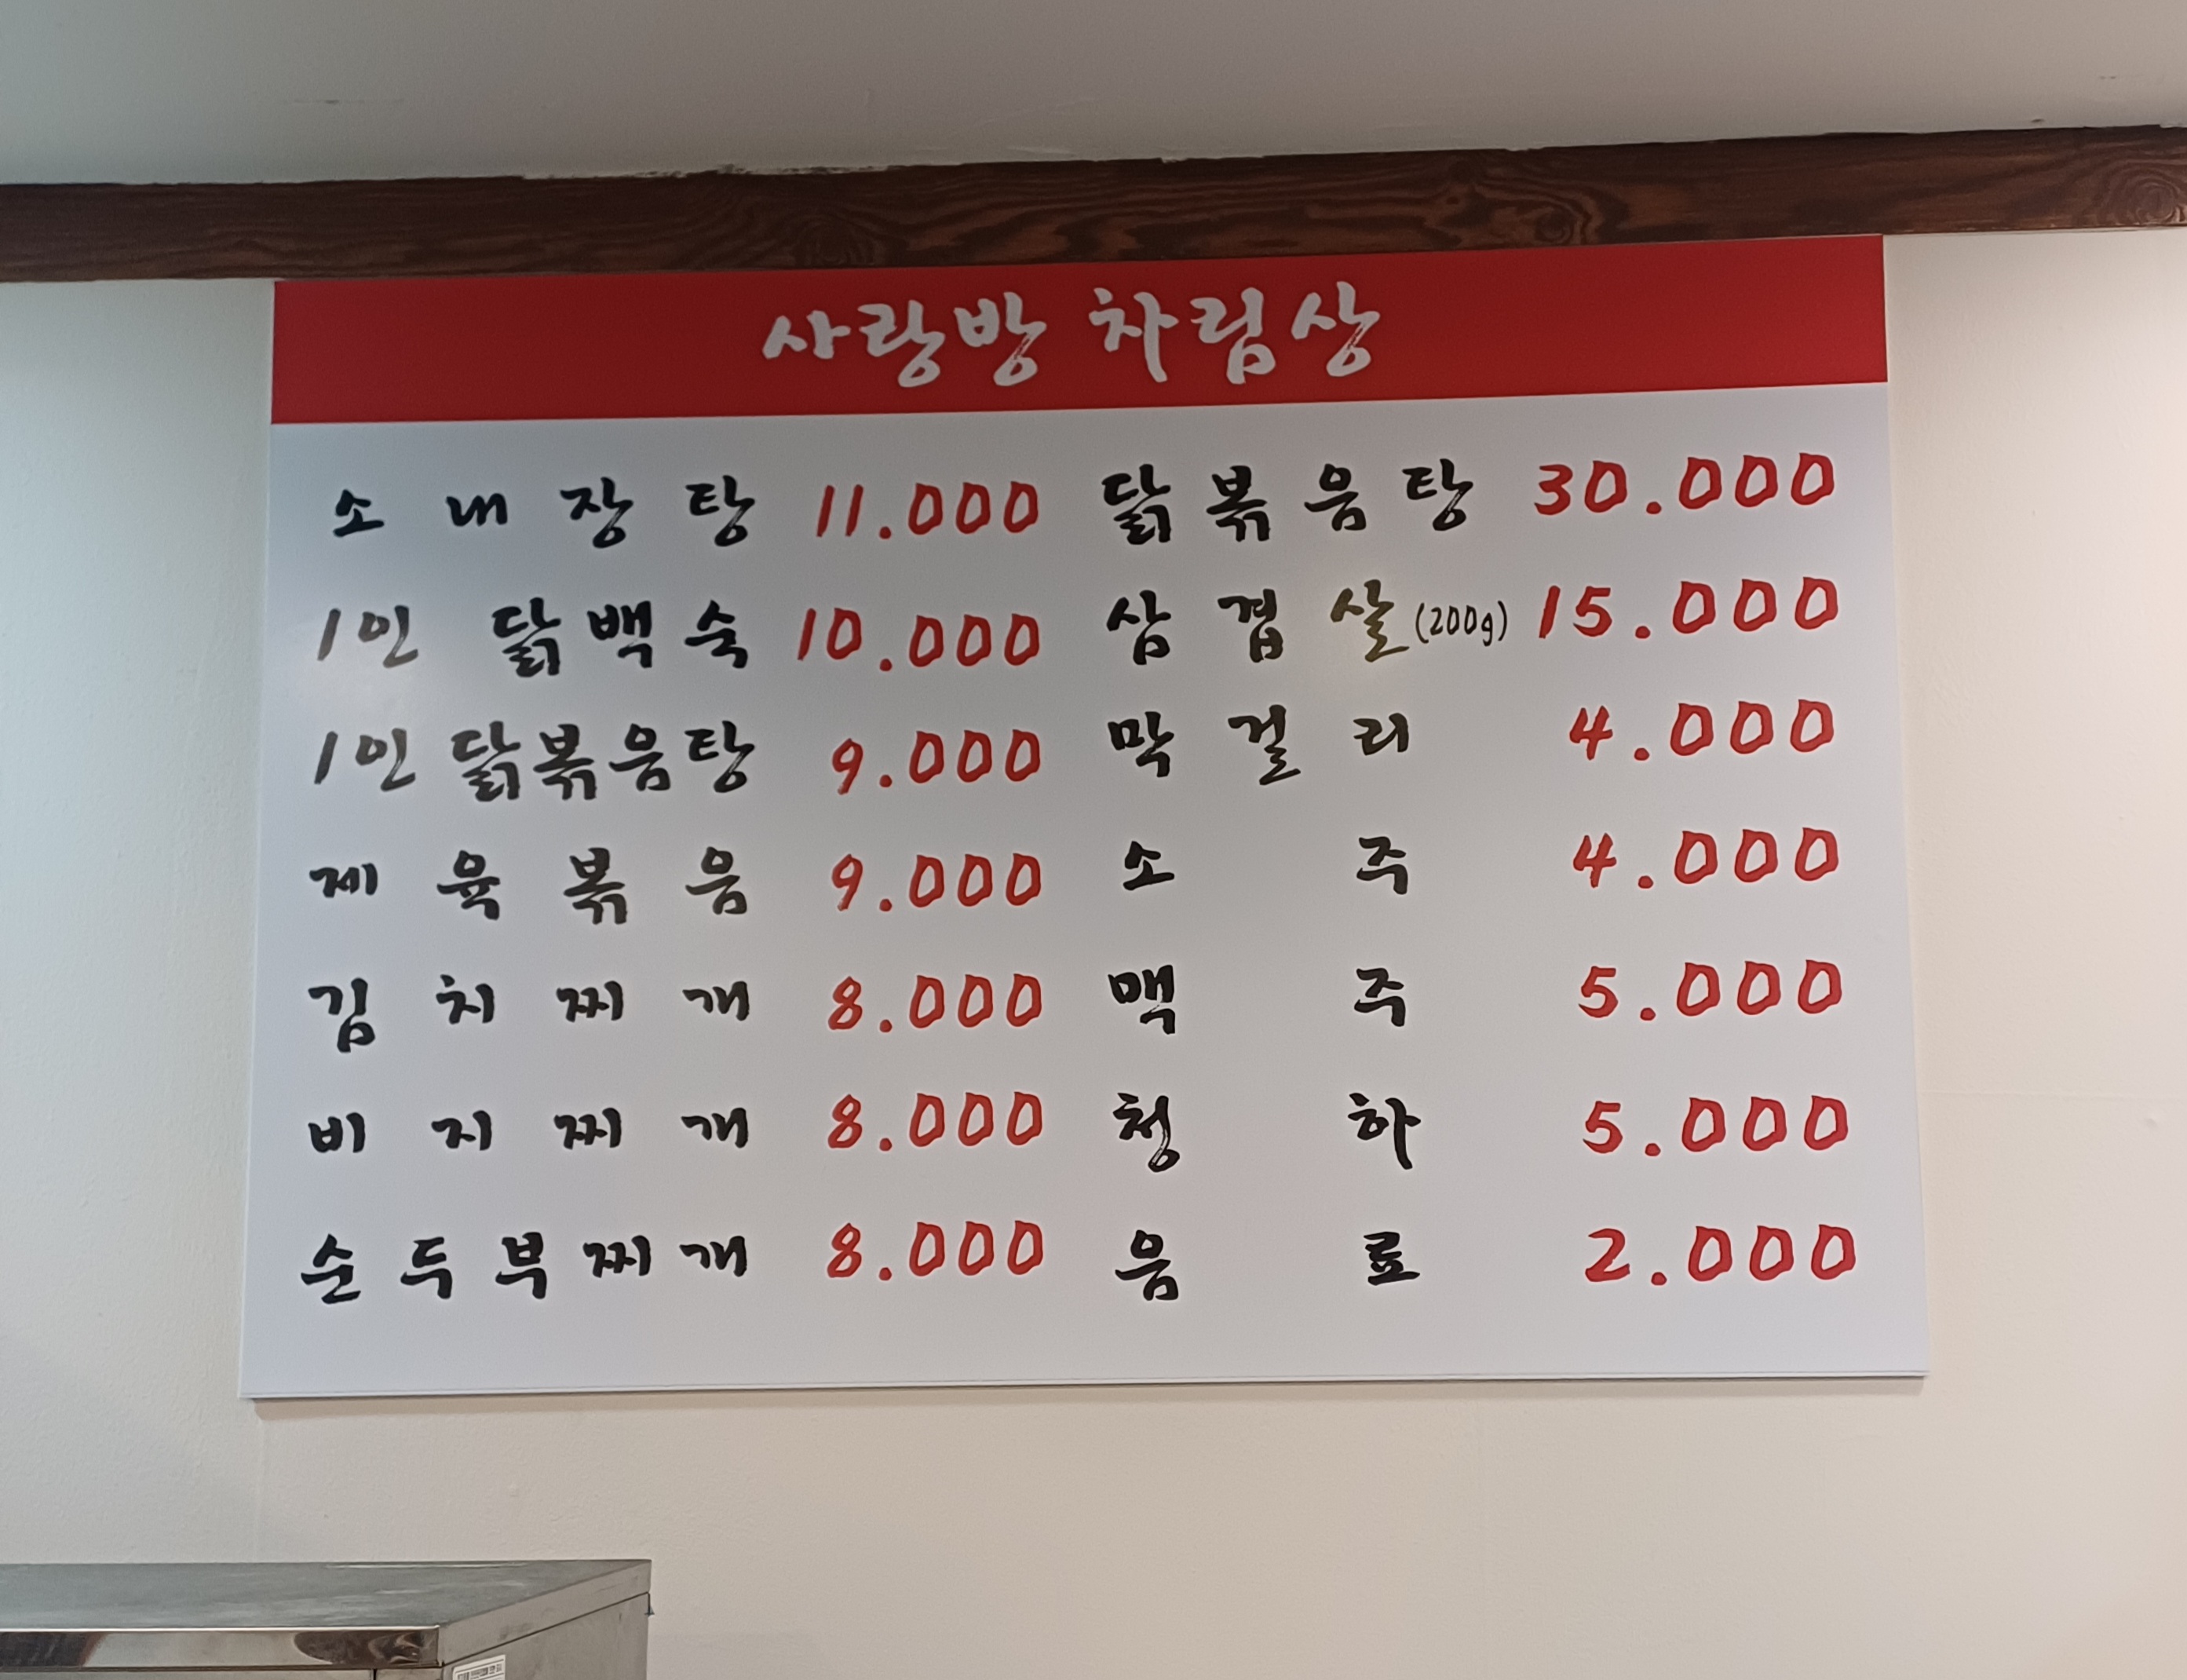 사랑방 차림상
소내장탕 11.000
1인 닭백숙 10.000
1인 닭볶음탕 9.000
제육볶음 9.000
김치찌개 8.000
비지찌개 8.000
순두부찌개 8.000
닭볶음탕 30.000
삼겹살(200g) 15.000
막걸리 4.000
소주 4.000
맥주 5.000
청하 5.000
음료 2.000